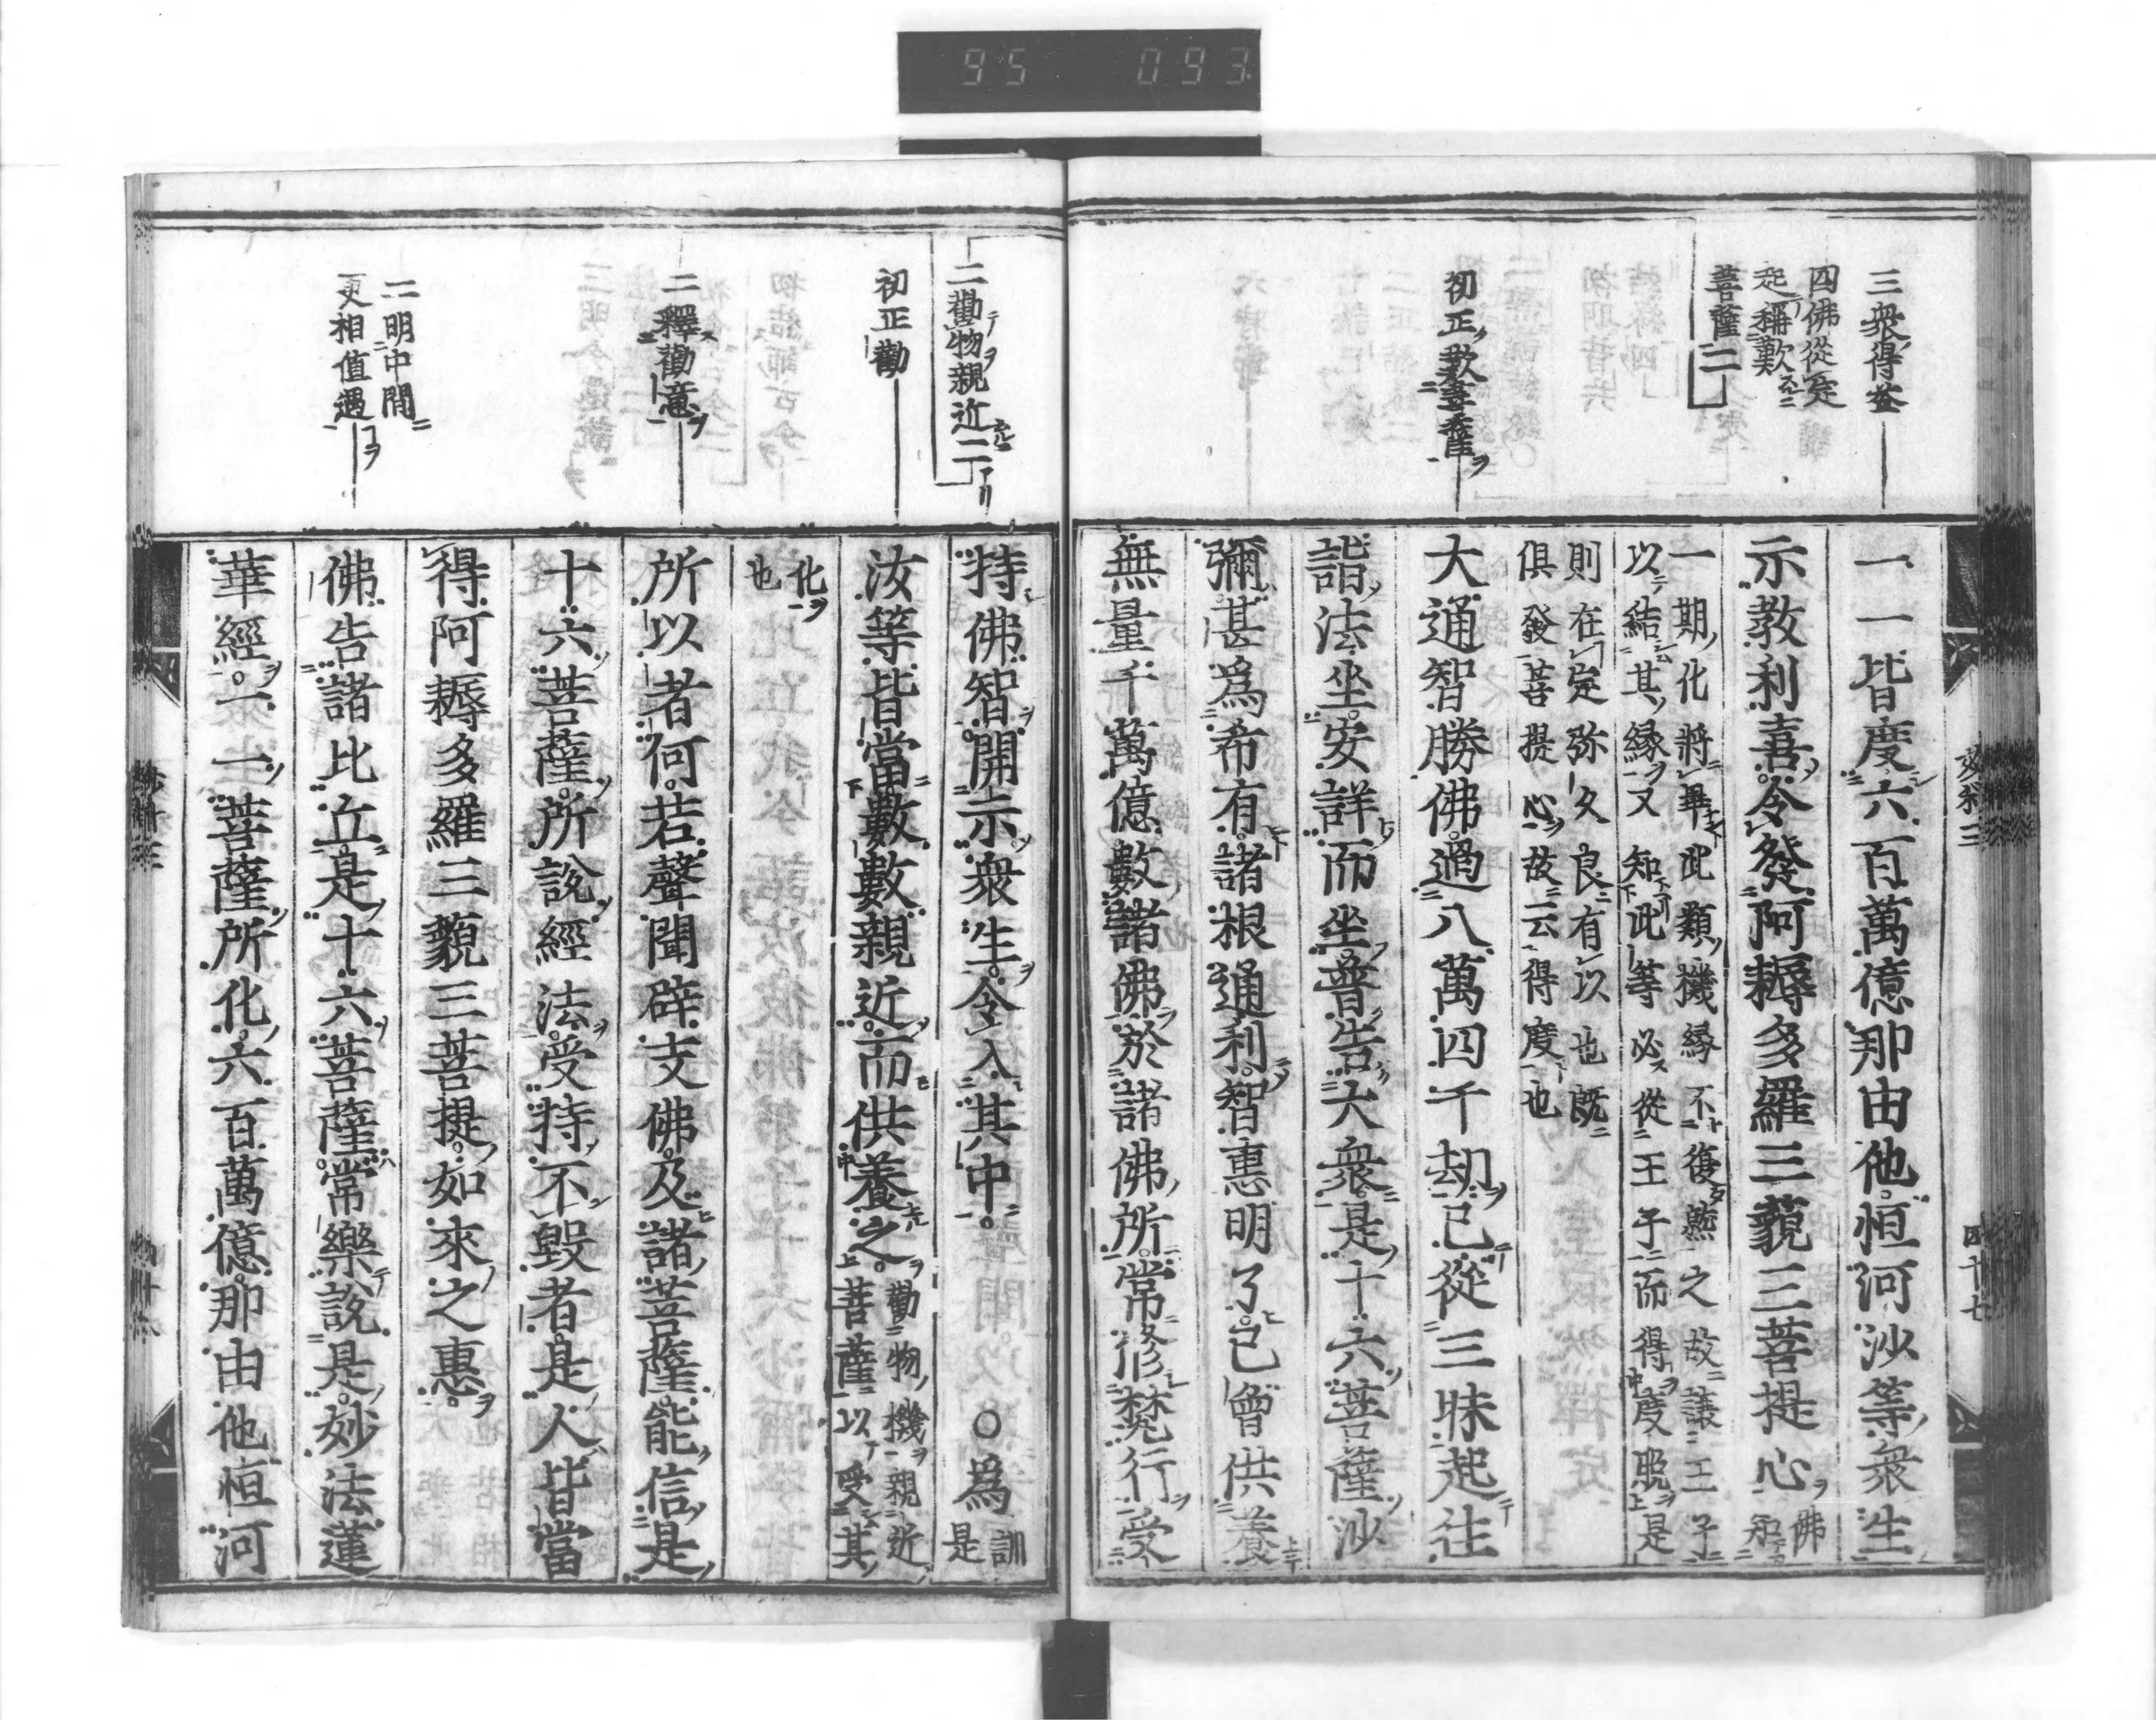 95 093
三衆得益
四佛從定
起稱歎
菩薩二
初正歎菩薩
一一皆度六百萬億那由他恒河沙等衆生
示教利喜令發阿耨多羅三藐三菩提心
佛
知
一期化將畢此類機縁不復熊之故讓王子
以結其縁又知此等必從王子而得度脱是
則在定弥久良有以也既
俱發菩提心故云得度也
大通智勝佛過八萬四千劫已從三昧起往
詣法坐安詳而坐普告大衆是十六菩薩沙
彌甚爲希有諸根通利智惠明了已曾供養
無量千萬億數諸佛於諸佛所常修梵行受
四十七
二勸物親近二
初正勸
二釋勸意
二明中間
更相値遇
持佛智開示衆生令入其中 〇爲
訓
是
汝等皆當數數親近而供養之
勸物機親近
菩薩以受其
化
也
所以者何若聲聞辟支佛及諸菩薩能信是
十六菩薩所説經法受持不毀者是人皆當
得阿耨多羅三藐三菩提如來之惠
佛告諸比丘是十六菩薩常樂説是妙法蓮
華經一一菩薩所化六百萬億那由他恒河